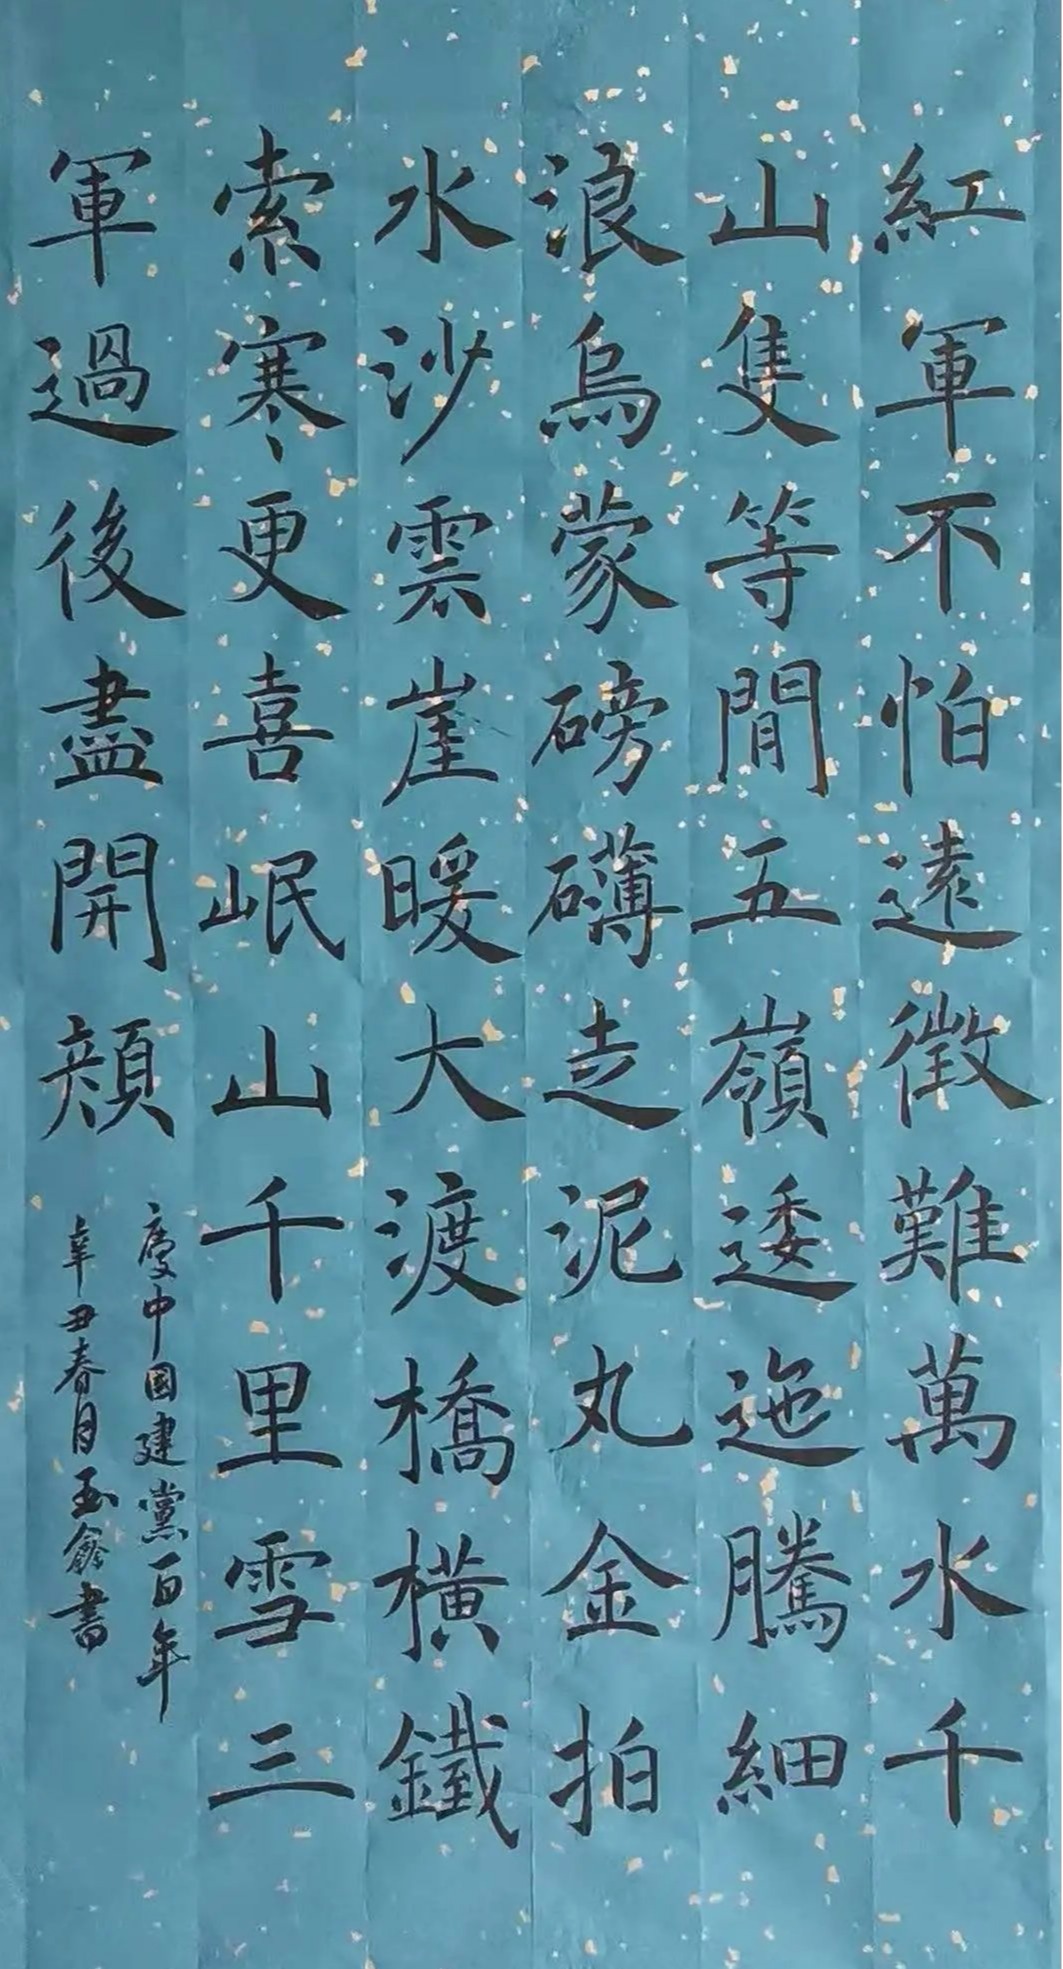 紅軍不怕遠徵難萬水千
山隻等閒五嶺逶迤騰細
浪烏蒙磅礴走泥丸金拍
水沙雲崖暖大渡橋橫鐵
索寒更喜岷山千里雪三
軍過後盡開頰
慶中國建黨百年
辛丑春月玉鑫書